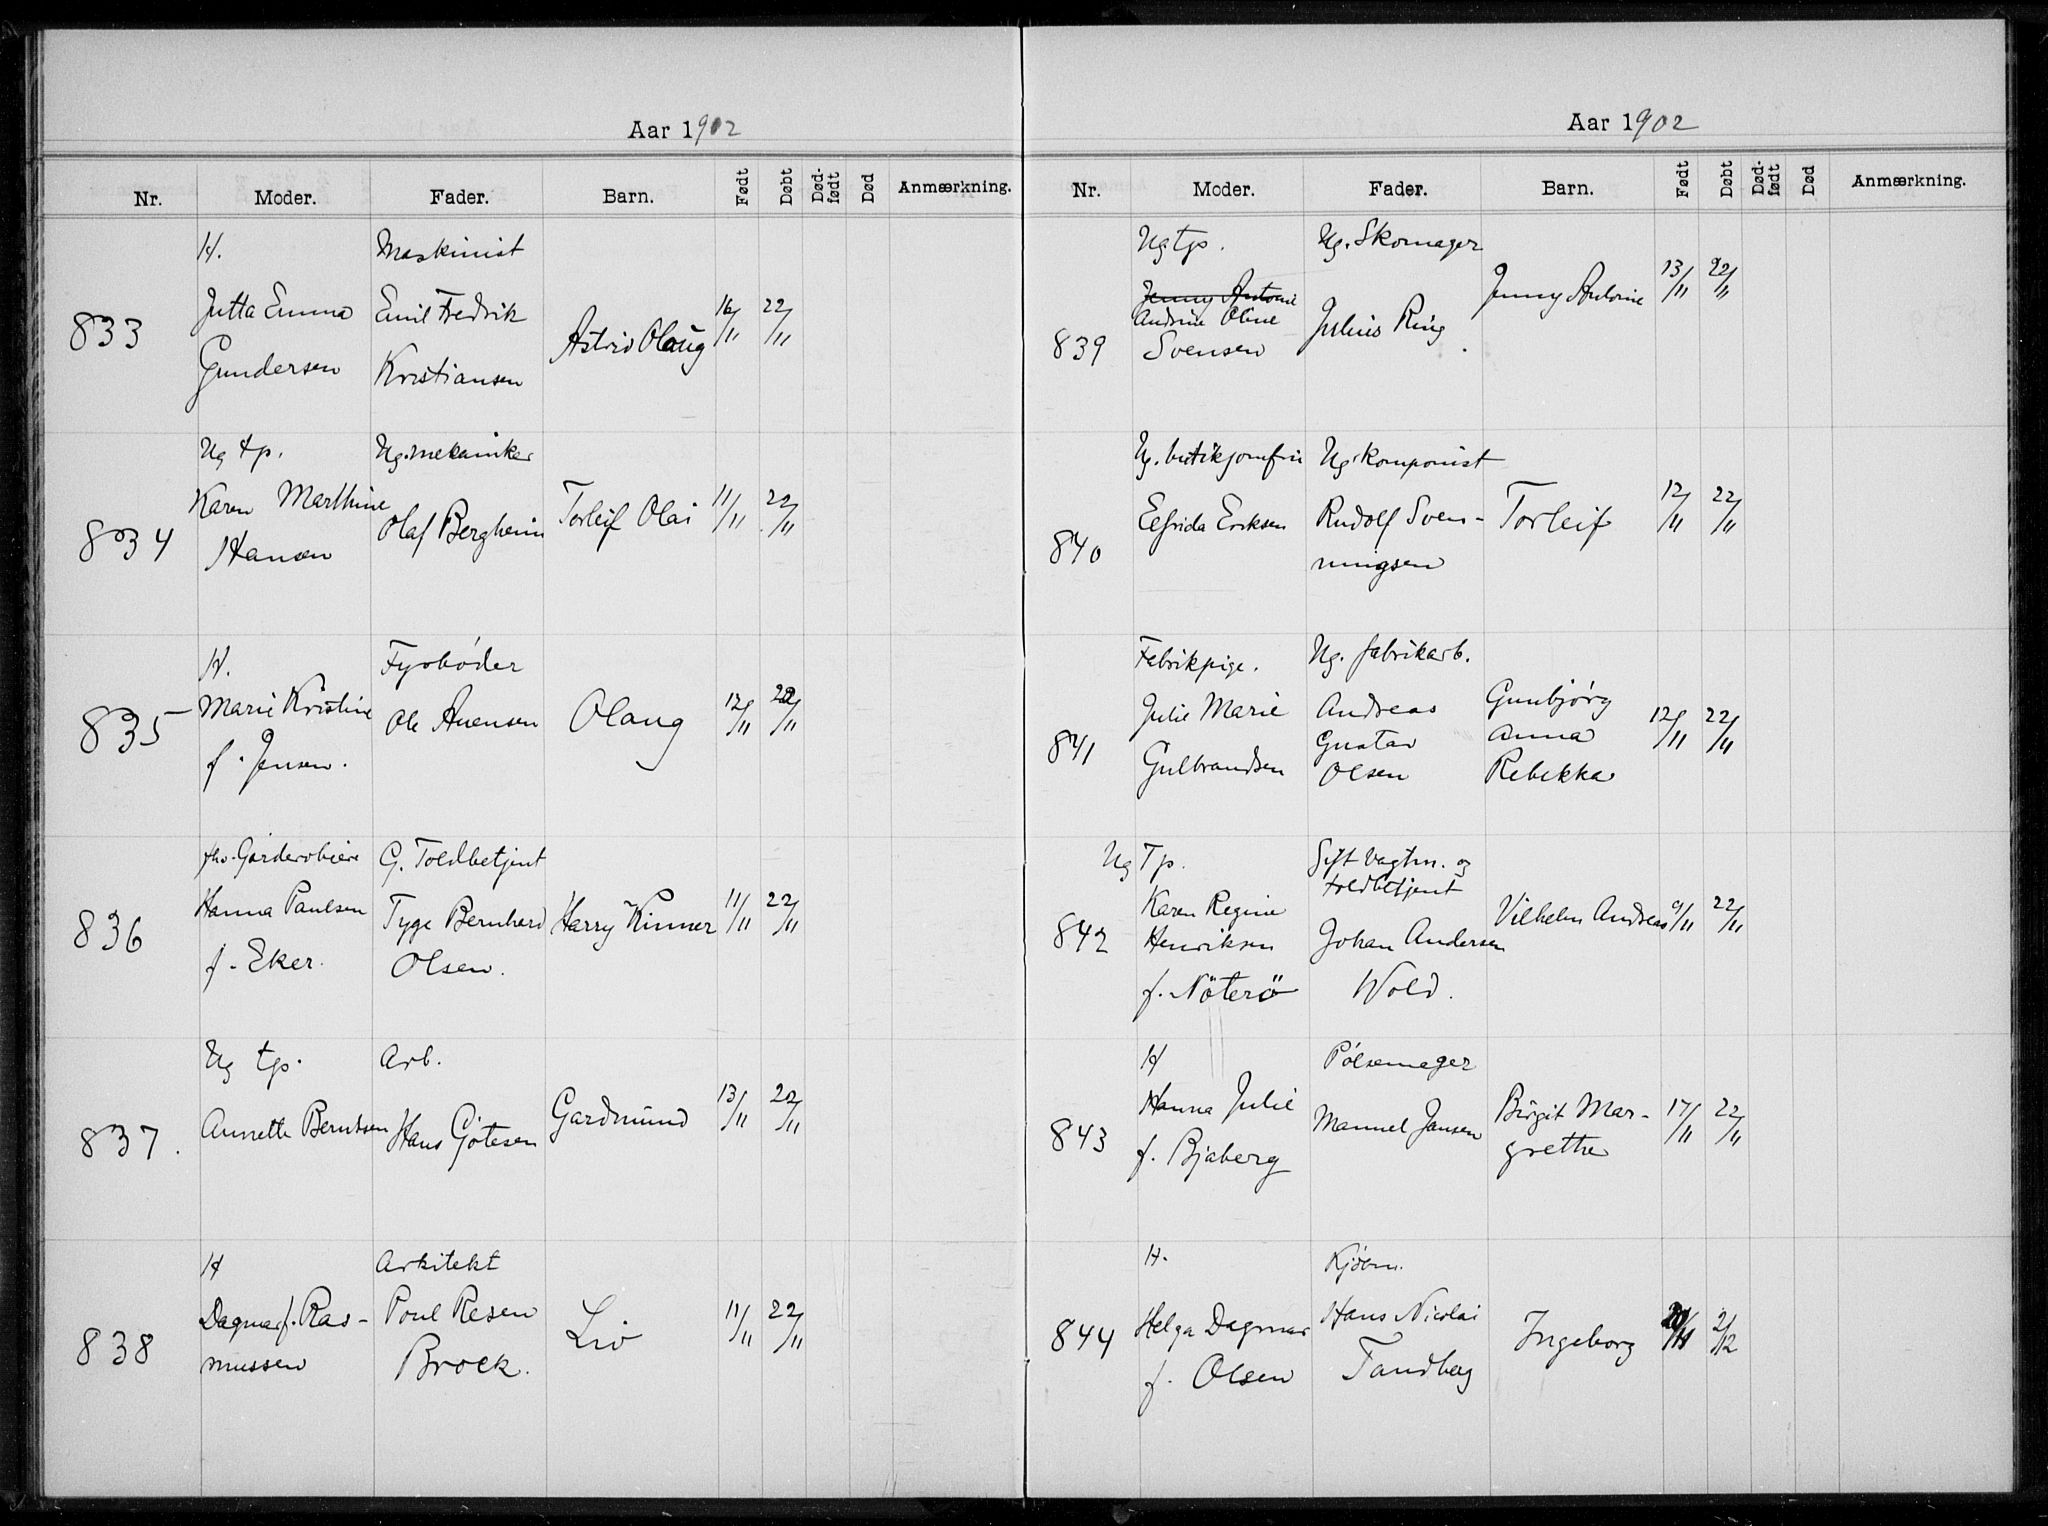 Aar 1902
Nr. Moder. Fader. Barn. Født Døbt Død-født Død Anmærkning.
833
H.
Jutta Emma
Gundersen
Maskinist
Emil Fredrik
Kristiansen
Astrid Olaug
16/11 22/11
834
Ug tp.
Karen Marthine
Hansen
Ug. mekaniker
Olaf Bergheim
Torleif Olai
11/11 22/11
835
H.
Marie Kristine
f. Jensen.
Fyrbøder
Ole Avensen
Olaug
12/11 22/11
836
fhv. Garderobiere
Hanna Paulsen
f. Eker.
G. Toldbetjent
Tyge Bernhard
Olsen.
Harry Kinner
11/11 22/11
837.
Ug tp.
Annette Berntsen
Arb.
Hans Götesen
Gardmund
13/11 22/11
838
H
Dagmar f. Ras-
mussen
Arkitekt
Poul Resen
Brock.
Liv
11/11 22/11
Aar 1902
Nr. Moder. Fader. Barn. Født Døbt Død-født Død Anmærkning.
839
Ug tp.
Jenny Antonie
Andrine Oline
Svensen
Ug. Skomager
Julius Ring.
Jenny Antonie
13/11 22/11
840
Ug. butikjomfru
Elfrida Eriksen
Ug. komponist
Rudolf Sven-
ningsen
Torleif
12/11 22/11
841
Fabrikpige.
Julie Marie
Gulbrandsen
Ug. fabrikarb.
Andreas
Gustav
Olsen
Gunbjørg
Anna
Rebekka
12/11 22/11
842
Ug Tp.
Karen Regine
Henriksen
f. Nöterö
Gift Vagtm. og
toldbetjent
Johan Andersen
Wold.
Vilhelm Andreas
9/11 22/11
843
H
Hanna Julie
f. Bjaberg
Pølsemager
Manuel Jansen
Birgit Mar-
grethe
17/11 22/11
844
H.
Helga Dagmar
f. Olsen
Kjøbm.
Hans Nicolai
Tandberg
Ingeborg
2/12